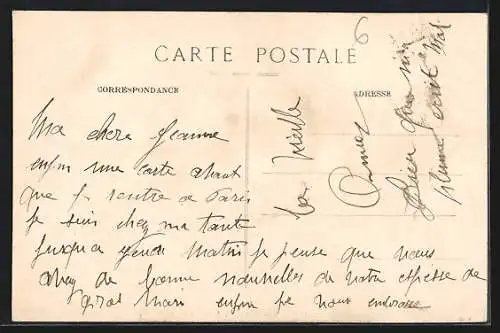 CARTE POSTALE
CORRESPONDANCE
ADRESSE
6
Ma chere Jeanne
enfin une carte avant
que je rentre de Paris
je suis chez ma tante
jusqua jeudi matin je pense que vous
avez de bonne nouvelles de votre espesse de
gros Mari enfin je vous embrasse
ta
Bien
plume écrit Mal